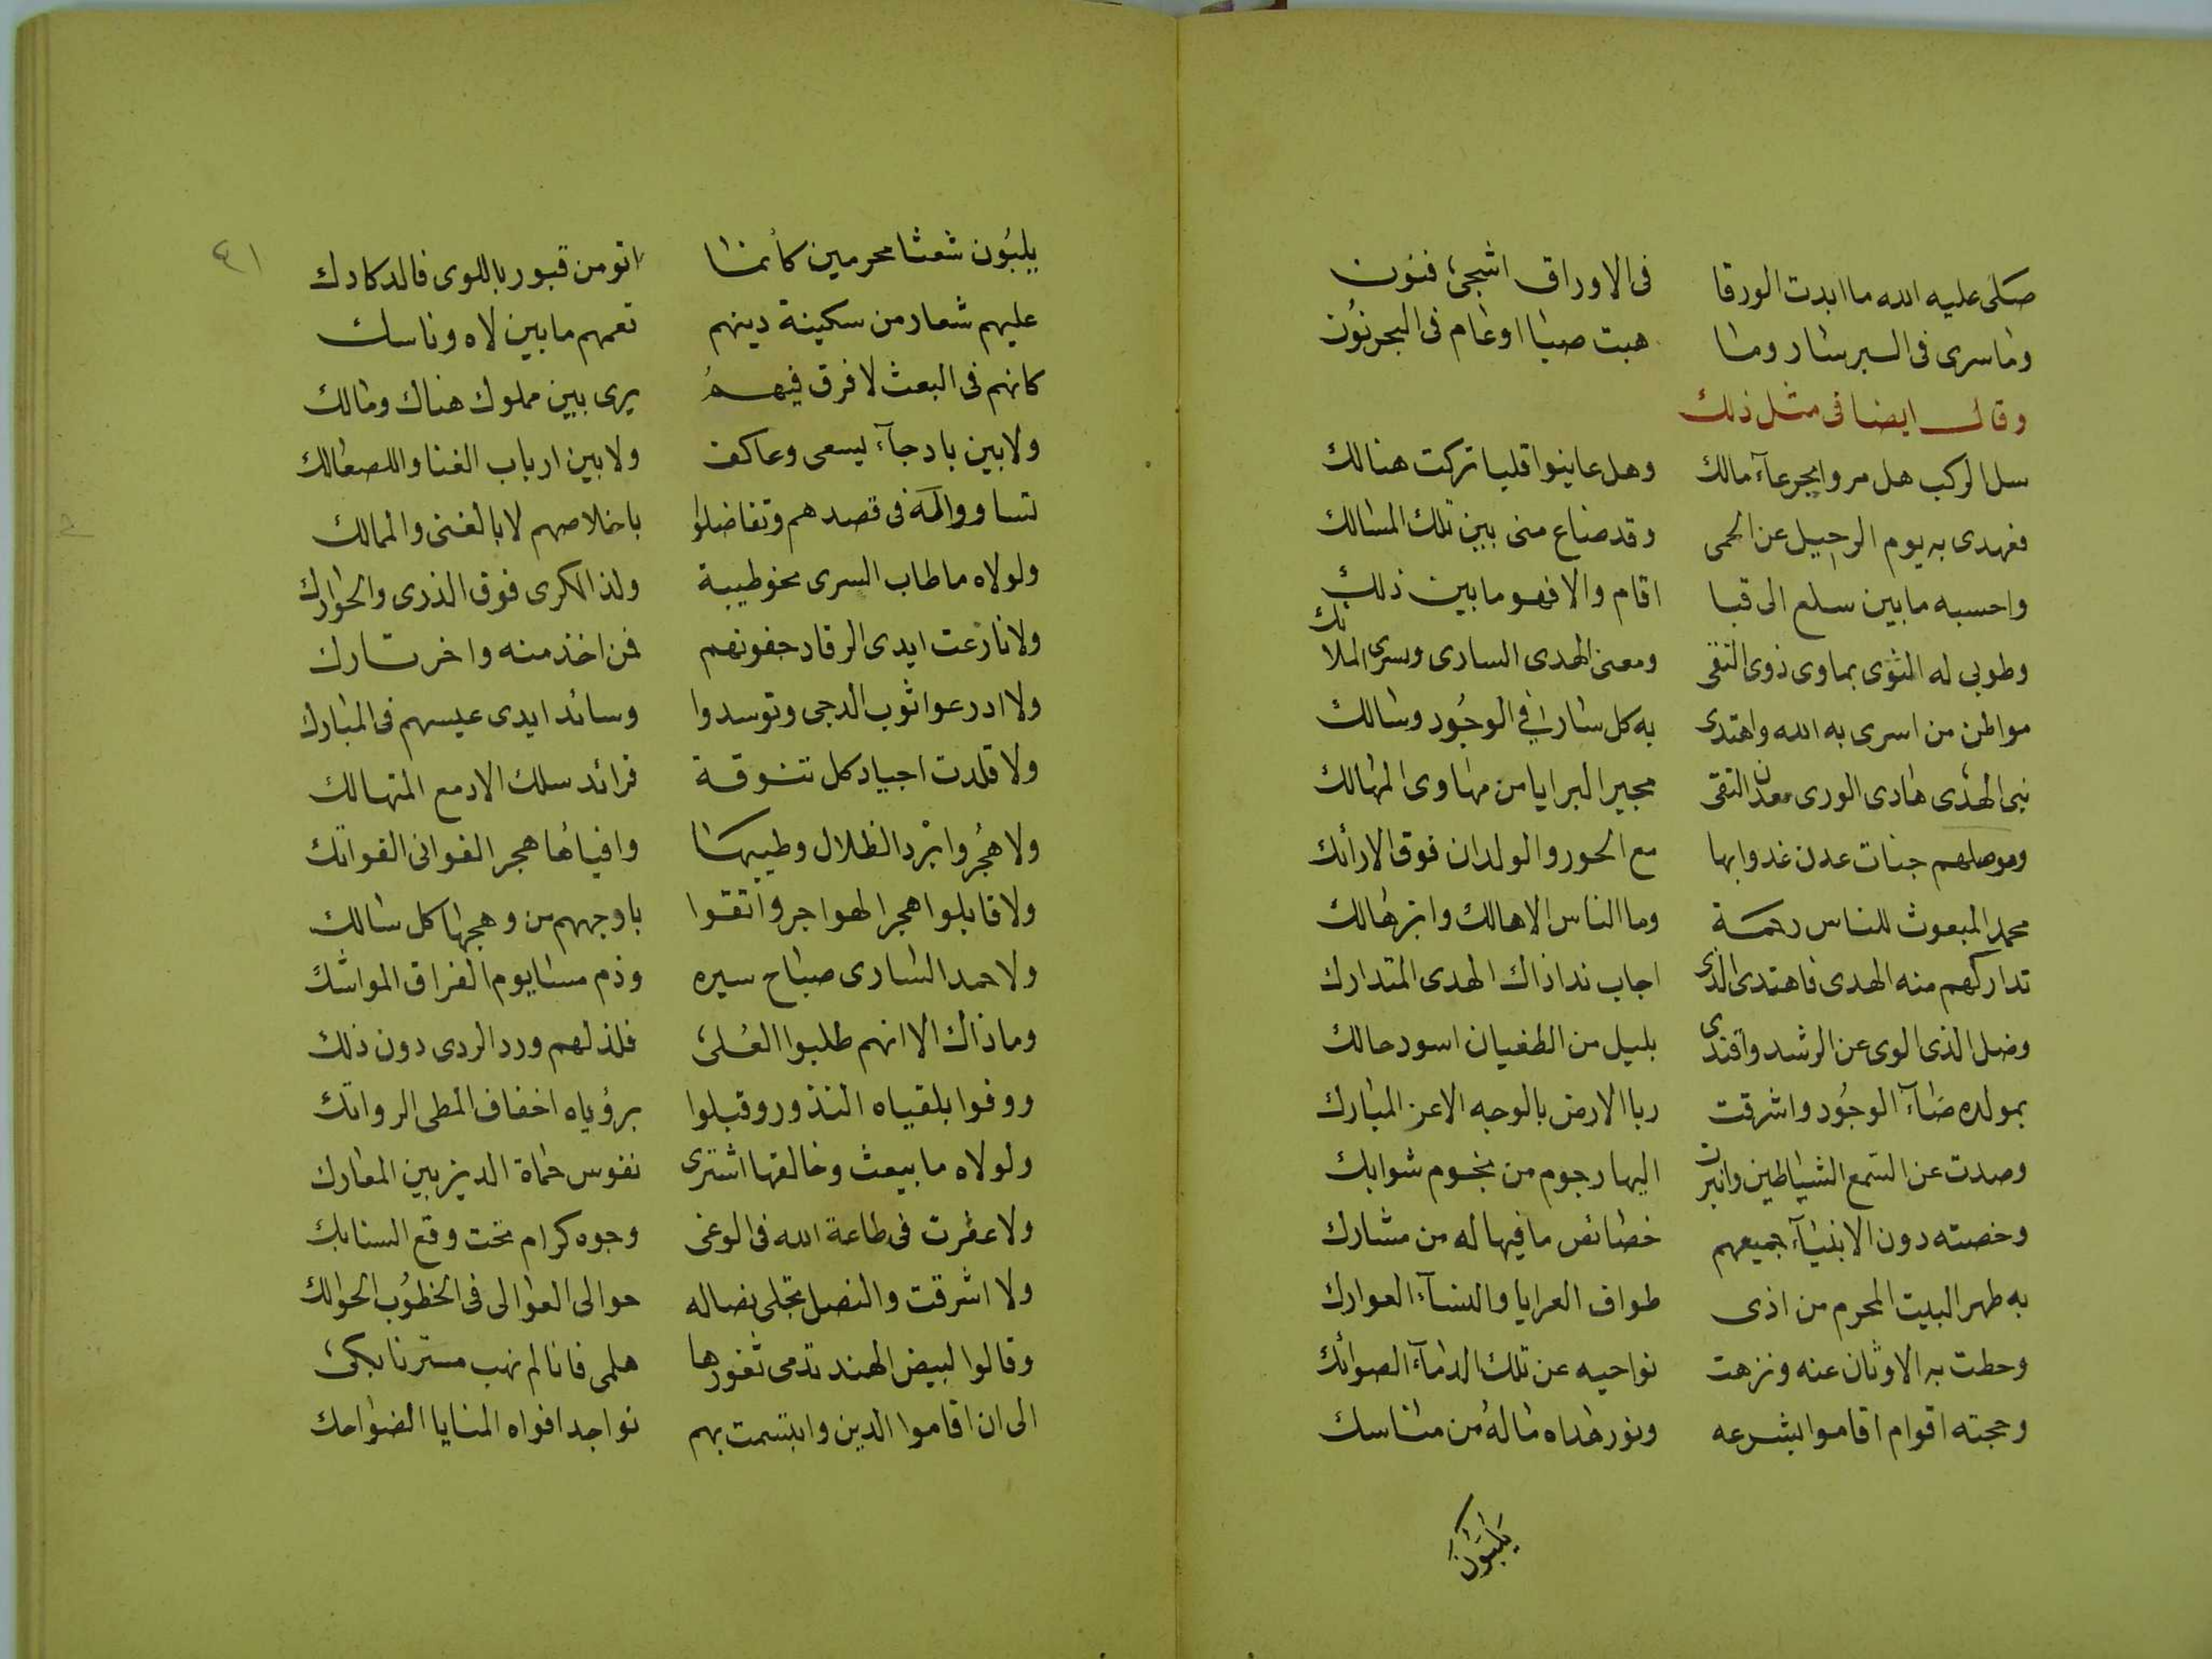 صلى عليه الله ما ابدت الورقا فى الاوراق اشجى فنون
وما سرى فى السبر سار وما هبت صبا او عام فى البحر نون
وقال ايضا فى مثل ذلك
سل الركب هل مروا بجرعآء مالك وهل عاينوا قلبا تركت هنالك
فعهدى به يوم الرحيل عن الحمى وقد ضاع منى بين تلك المسالك
واحسبه ما بين سلع الى قبا اقام والا فهو ما بين ذلك
وطوبى له المثوى بماوى ذوى التقى ومعنى الهدى السارى وسرى الملائك
مواطن من اسرى به الله واهتدى به كل سار فى الوجود وسالك
نبى الهدى هادى الورى معدن التقى مجير البرايا من مهاوى المهالك
وموصلهم جنات عدن غدوا بها مع الحور والولدان فوق الارائك
محمد المبعوث للناس رحمة وما الناس الا هالك وابن هالك
تداركهم منه الهدى فاهتدى الذى اجاب ندا ذاك الهدى المتدارك
وضل الذى الوى عن الرشد واقتدى بليل من الطغيان اسود حالك
بمولده ضآء الوجود واشرقت ربا الارض بالوجه الاعز المبارك
وصدت عن السمع الشياطين وانبرت اليها رجوم من نجوم شوابك
وخصته دون الانبيآء جميعهم خصائص ما فيها له من مشارك
به طهر البيت المحرم من اذى طواف العرايا والنسآء العوارك
وحطت به الاوثان عنه ونزهت نواحيه عن تلك الدمآء الصوائك
وحجته اقوام اقاموا بشرعه ونور هداه ماله من مناسك
يلبون
٤١
يلبون شعثا محرمين كأنما اتو من قبور باللوى فالدكادك
عليهم شعار من سكينة دينهم تعمهم ما بين لاه وناسك
كانهم فى البعث لا فرق فيهم يرى بين مملوك هناك ومالك
ولا بين باد جآء يسعى وعاكف ولا بين ارباب الغنا والصعالك
تساووا له فى قصدهم وتفاضلوا باخلاصهم لا بالغنى والممالك
ولولاه ما طاب السرى نحو طيبة ولذ الكرى فوق الذرى والحوارك
ولا نازعت ايدى الرقاد جفونهم فمن اخذ منه واخر تارك
ولا ادرعوا ثوب الدجى وتوسدوا وسائد ايدى عيسهم فى المبارك
ولا قلدت اجياد كل تنوفة فرائد سلك الادمع المتهالك
ولا هجروا برد الظلال وطيبها وافياها هجر الغوانى الفواتك
ولا قابلوا هجر الهواجر واتقوا باوجههم من وهجها كل سالك
ولا حمد السارى صباح سيره وذم مسا يوم الفراق المواشك
وما ذاك الا انهم طلبوا العلى فلذ لهم ورد الردى دون ذلك
ووفوا بلقياه النذور وقبلوا برؤياه اخفاف المطى الرواتك
ولولاه ما بيعث وخالقها اشترى نفوس حماة الدين بين المعارك
ولا عفرت فى طاعة الله فى الوغى وجوه كرام تحت وقع السنابك
ولا اشرقت والنصل تجلى نصاله حوالى العوالى فى الخطوب الحوالك
وقالوا لبيض الهند تدمى ثغورها هلمى فانا لم نهب
الى ان اقاموا الدين وابتسمت بهم نواجد افواه المنايا الضواحك